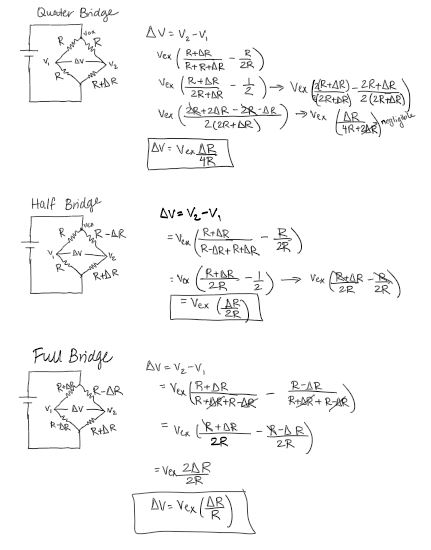 Quater Bridge
Vex
R R
V₁ ΔV V₂
R R+ΔR
ΔV = V₂ - V₁
Vex ( (R+ΔR)/(R+R+ΔR) - R/2R )
Vex ( (R+ΔR)/(2R+ΔR) - 1/2 ) → Vex ( 2(R+ΔR)/(2(2R+ΔR)) - (2R+ΔR)/(2(2R+ΔR)) )
Vex ( (2R+2ΔR-2R-ΔR)/(2(2R+ΔR)) ) → Vex ( ΔR/(4R+2ΔR) ) negligible
ΔV = Vex ΔR/4R
Half Bridge
Vex
R R-ΔR
V₁ ΔV V₂
R R+ΔR
ΔV = V₂ - V₁
= Vex ( (R+ΔR)/(R-ΔR+R+ΔR) - R/2R )
= Vex ( (R+ΔR)/2R - 1/2 ) → Vex ( (R+ΔR)/2R - R/2R )
= Vex ( ΔR/2R )
Full Bridge
R+ΔR R-ΔR
V₁ ΔV V₂
R-ΔR R+ΔR
ΔV = V₂ - V₁
= Vex ( (R+ΔR)/(R+ΔR+R-ΔR) - (R-ΔR)/(R+ΔR+R-ΔR) )
= Vex ( (R+ΔR)/2R - (R-ΔR)/2R )
= Vex 2ΔR/2R
ΔV = Vex ( ΔR/R )